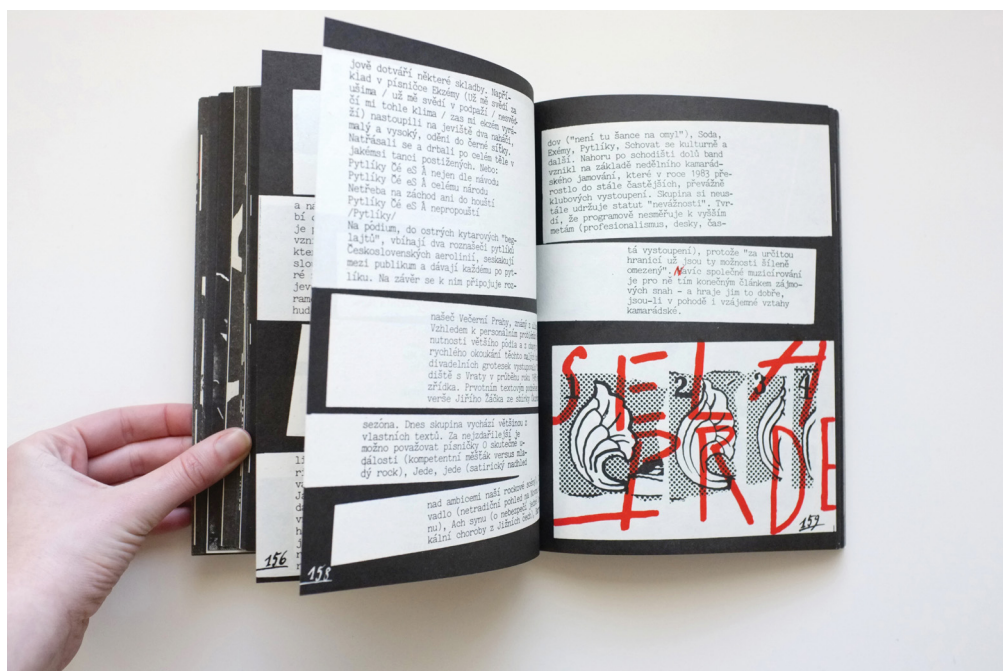 jově dotváří některé skladby. Napří-
klad v písničce Ekzémy (Už mě svědí za
ušima / už mě svědí v podpaží / nesvěd-
čí mi tohle klima / zas mi ekzém vyrá-
ží) nastoupili na jeviště dva naháči,
malý a vysoký, odění do černé síťky.
Natřásali se a drbali po celém těle v
jakémsi tanci postižených. Nebo:
Pytlíky Čé eS Á nejen dle návodu
Pytlíky Čé eS Á celému národu
Netřeba na záchod ani do houští
Pytlíky Čé eS Á nepropouští
/Pytlíky/
Na pódium, do ostrých kytarových "beg-
lajtů", vbíhají dva roznašeči pytlíků
Československých aerolinií, seskakují
mezi publikum a dávají každému po pyt-
líku. Na závěr se k nim připojuje roz-
našeč Večerní Prahy, známý z
Vzhledem k personálním
nutnosti většího pódia a z
rychlého okoukání těchto
divadelních grotesek
diště s Vraty v průběhu roku
zřídka. Prvotním textovým
verše Jiřího Žáčka ze sbírky
sezóna. Dnes skupina vychází většinou z
vlastních textů. Za nejzdařilejší je
možno považovat písničky O skutečné u-
dálosti (kompetentní měšťák versus mla-
dý rock), Jede, jede (satirický nadhled
nad ambicemi naší rockové
vadlo (netradiční pohled na
nu), Ach synu (o nebezpečí
kální choroby z Jižních Čech)
156
158
dov ("není tu šance na omyl"), Soda,
Exémy, Pytlíky, Schovat se kulturně a
další. Nahoru po schodišti dolů band
vznikl na základě nedělního kamarád-
ského jamování, které v roce 1983 pře-
rostlo do stále častějších, převážně
klubových vystoupení. Skupina si neus-
tále udržuje statut "nevážnosti". Tvr-
dí, že programově nesměřuje k vyšším
metám (profesionalismus, desky, čas-
tá vystoupení), protože "za určitou
hranicí už jsou ty možnosti šíleně
omezený". Navíc společné muzicírování
je pro ně tím konečným článkem zájmo-
vých snah - a hraje jim to dobře,
jsou-li v pohodě i vzájemné vztahy
kamarádské.
SELA
1 2 3 4
PRDE
159